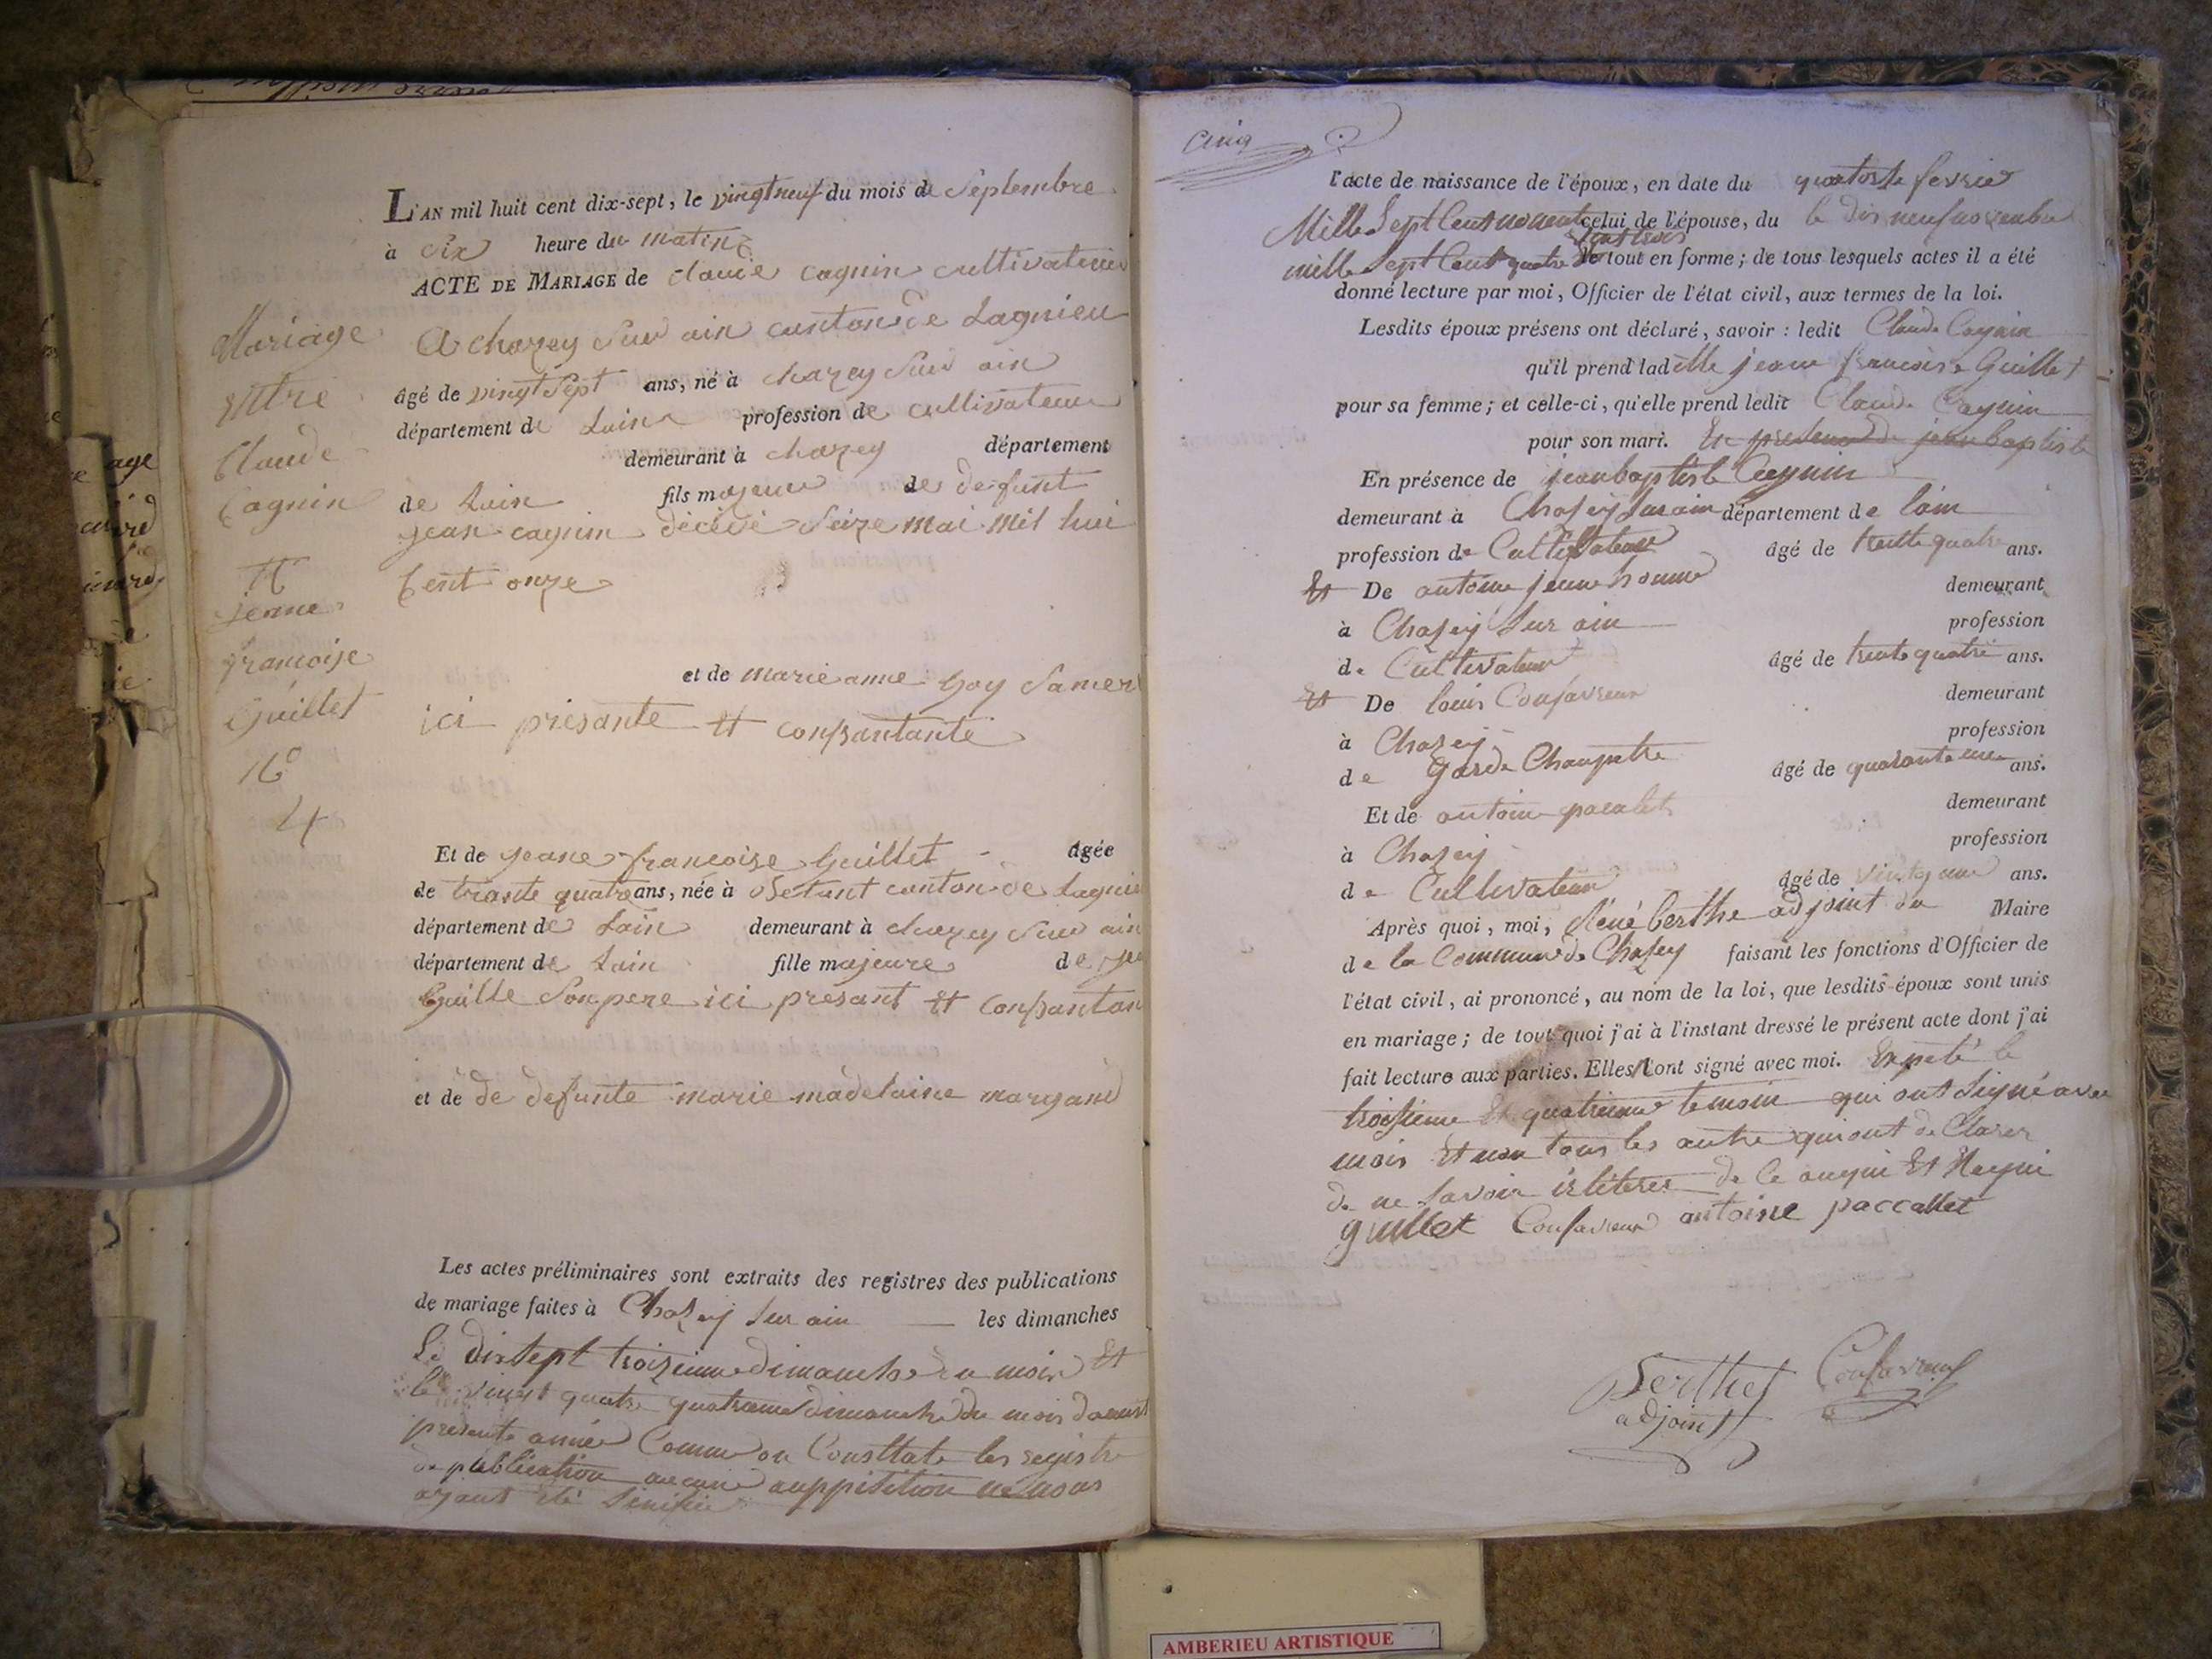 Mariage
entre
Claude
Cagnin
Et
jeanne
francoise
Guillet
N°
4
L'AN mil huit cent dix-sept, le vingtneuf du mois de Septembre
à six heure du matin
ACTE DE MARIAGE de claude cagnin cultivateur
A chazey sur ain canton de Lagnieu
âgé de vingt sept ans, né à chazey sur ain
département de Lain profession de cultivateur
demeurant à chazey département
de Lain fils majeur de defunt
jean cagnin décédé seize mai mil hui
Cent onze
et de marie anne Goy sa mer
ici présante Et consantante
Et de jeane francoise Guillet âgée
de trante quatre ans, née à canton de Lagnie
département de Lain demeurant à chazey sur ain
département de Lain fille majeure de
Guille son pere ici présant Et consantan
et de de defunte marie madelaine margand
Les actes préliminaires sont extraits des registres des publications
de mariage faites à Chazey sur ain les dimanches
Le dix sept troizieme dimanche du mois Et
le vingt quatre quatrieme dimanche du mois daoust
presente année Comme on Consttate les registre
de publication aucune auppisition ne nous
ayant été
cinq
l'acte de naissance de l'époux, en date du quatorze fevrier
Mille Sept Cent nonente celui de l'épouse, du le dix neuf novembre
mille Sept Cent quatre vingt trois le tout en forme; de tous lesquels actes il a été
donné lecture par moi, Officier de l'état civil, aux termes de la loi.
Lesdits époux présens ont déclaré, savoir: ledit Claude Cagnin
qu'il prend ladelle jeane francoise Guillet
pour sa femme; et celle-ci, qu'elle prend ledit Claude Cagnin
pour son mari. En presence de jean baptiste
En présence de jean baptiste Cagnin
demeurant à Chazey sur ain département de lain
profession de Cultivateur âgé de trente quatre ans.
Et De antoine jeune homme demeurant
à Chazey sur ain profession
de Cultivateur âgé de trente quatre ans.
Et De louis Confavreux demeurant
à Chazey profession
de Garde Champetre âgé de quarante une ans.
Et de antoine pacalet demeurant
à Chazey profession
de Cultivateur âgé de ans.
Après quoi, moi, René berthe adjoint du Maire
de la Commune de Chazey faisant les fonctions d'Officier de
l'état civil, ai prononcé, au nom de la loi, que lesdits époux sont unis
en mariage; de tout quoi j'ai à l'instant dressé le présent acte dont j'ai
fait lecture aux parties. Elles l'ont signé avec moi. le
troisieme Et quatrieme temoin qui ont signé avec
mois Et non tous les autre qui ont de Clarer
de ne savoir de ce anquit Et Requi
guillet Confavreux antoine paccallet
Berthet Confavreux
adjoint
AMBERIEU ARTISTIQUE